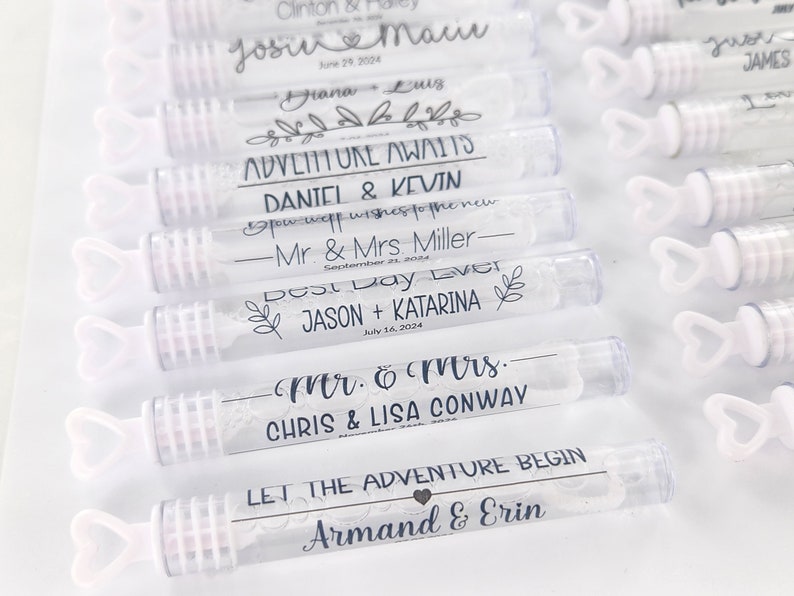 Clinton & Hailey
Josie Macie
June 29, 2024
Diana + Luis
ADVENTURE AWAITS
DANIEL & KEVIN
Blow well wishes to the new
Mr. & Mrs. Miller
September 21, 2024
Best Day Ever
JASON + KATARINA
July 16, 2024
Mr. & Mrs.
CHRIS & LISA CONWAY
LET THE ADVENTURE BEGIN
Armand & Erin
JAMES